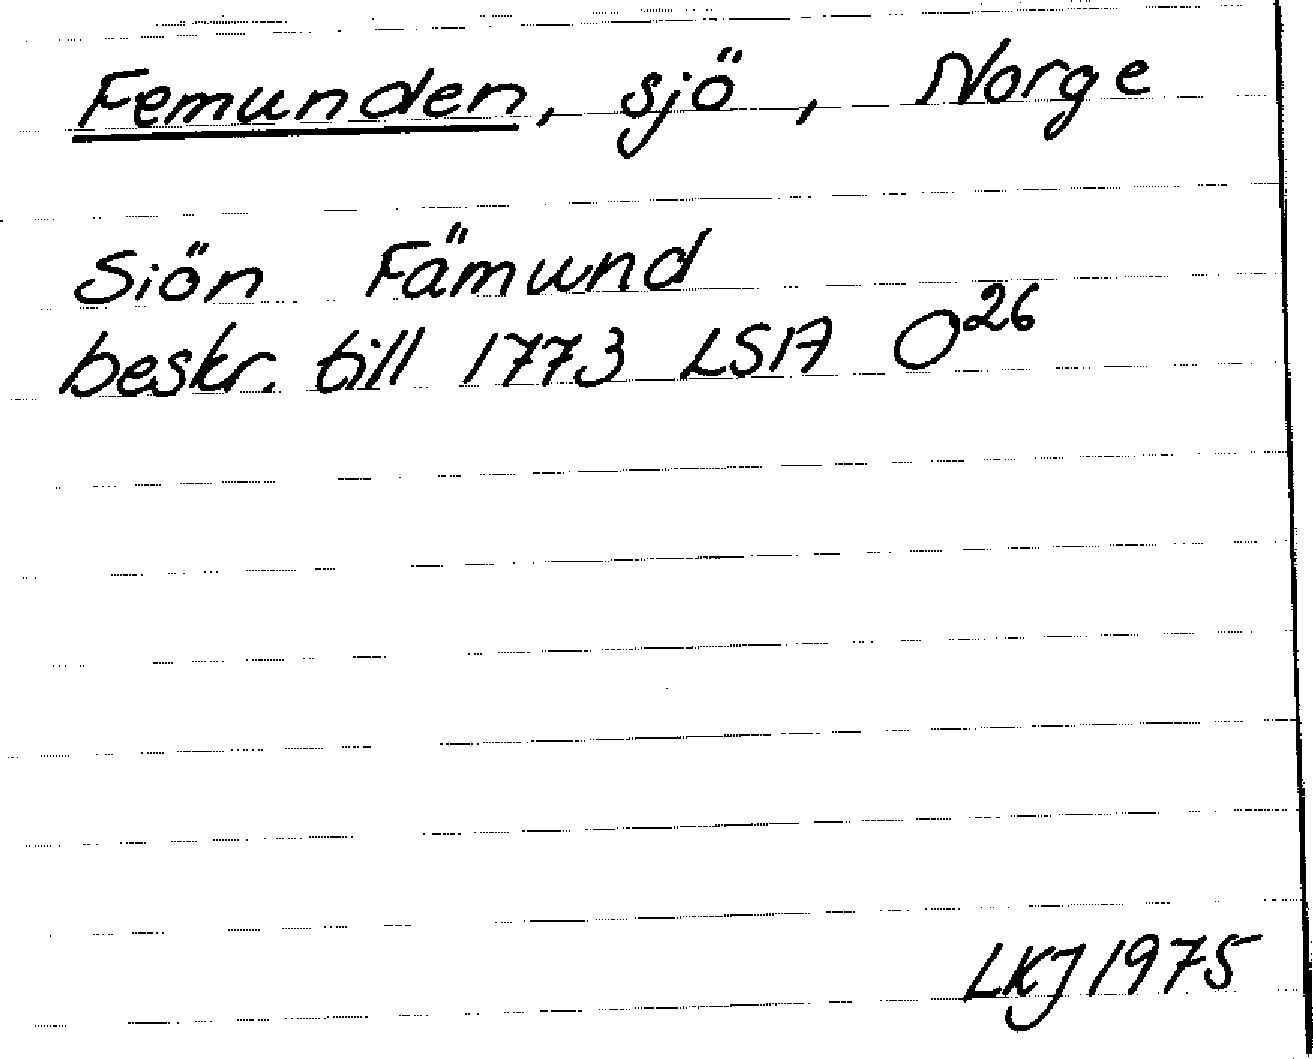 Femunden, sjö, Norge
Siön Fämund
beskr. till 1773 LSA O²⁶
LKJ 1975